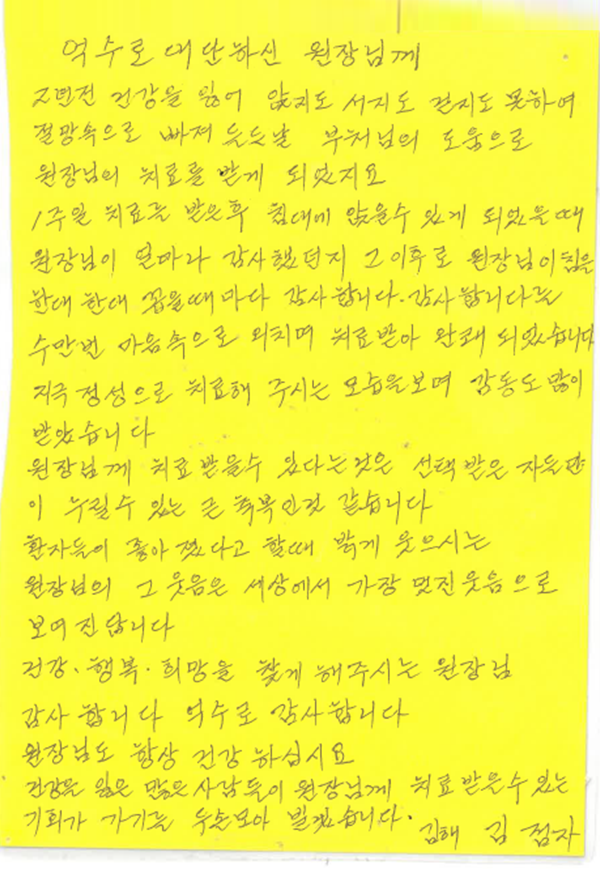 억수로 대단하신 원장님께
2년전 건강을 잃어 앉지도 서지도 걷지도 못하여
절망속으로 빠져 드는날 부처님의 도움으로
원장님의 치료를 받게 되었지요
1주일 치료를 받은후 침대에 앉을수 있게 되었을때
원장님이 얼마나 감사했던지 그이후로 원장님이 침을
한대 한대 꼽을때마다 감사합니다. 감사합니다를
수만번 마음속으로 외치며 치료받아 완쾌 되었습니다
지극정성으로 치료해 주시는 모습을보며 감동도 많이
받았습니다
원장님께 치료받을수 있다는것은 선택받은 자들만
이 누릴수 있는 큰 축복인것 같습니다
환자들이 좋아졌다고 할때 밝게 웃으시는
원장님의 그 웃음은 세상에서 가장 멋진웃음으로
보여진답니다
건강·행복·희망을 찾게 해주시는 원장님
감사합니다 억수로 감사합니다
원장님도 항상 건강하십시요
건강을 잃은 많은사람들이 원장님께 치료받을수있는
기회가 가기를 두손모아 빌겠습니다.
김해 김점자